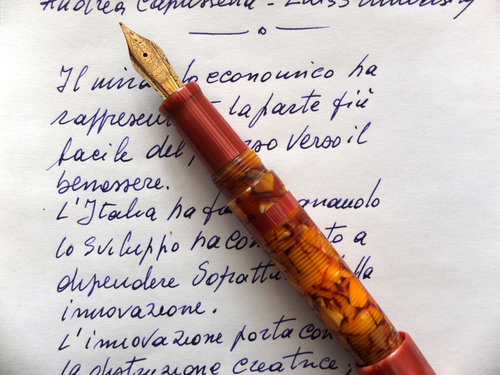 Andrea Capussela - Luiss University
Il mira lo economico ha
rappresen la parte più
facile del p rso verso il
benessere.
L'Italia ha fa quando
lo sviluppo ha com to a
dipendere soprattut lla
innovazione.
L'innovazione porta con
la distruzione creatrice,